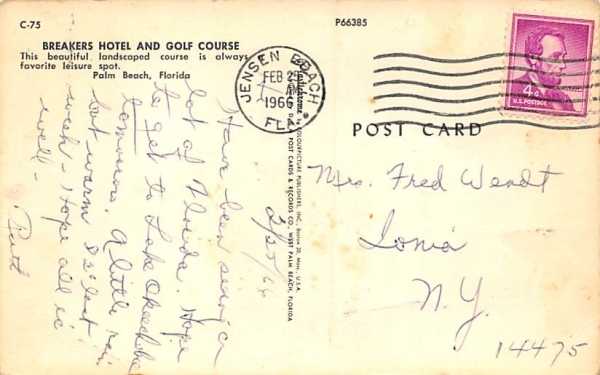 C-75
BREAKERS HOTEL AND GOLF COURSE
This beautiful landscaped course is always
favorite leisure spot.
Palm Beach, Florida
P66385
JENSEN BEACH
FEB 25
AM
1966
FLA.
4¢
U.S. POSTAGE
POST CARD
COLOURPICTURE PUBLISHERS, INC., Boston 30, Mass., U.S.A.
POST CARDS & RECORDS CO., WEST PALM BEACH, FLORIDA
2/25/66
Have been seeing a
lot of Florida. Hope
to get to Lake Okeechobee
tomorrow. A little rain
but warm 82° last
week - Hope all is
well -
Ruth
Mrs. Fred Wendt
Ionia
N.Y.
14475